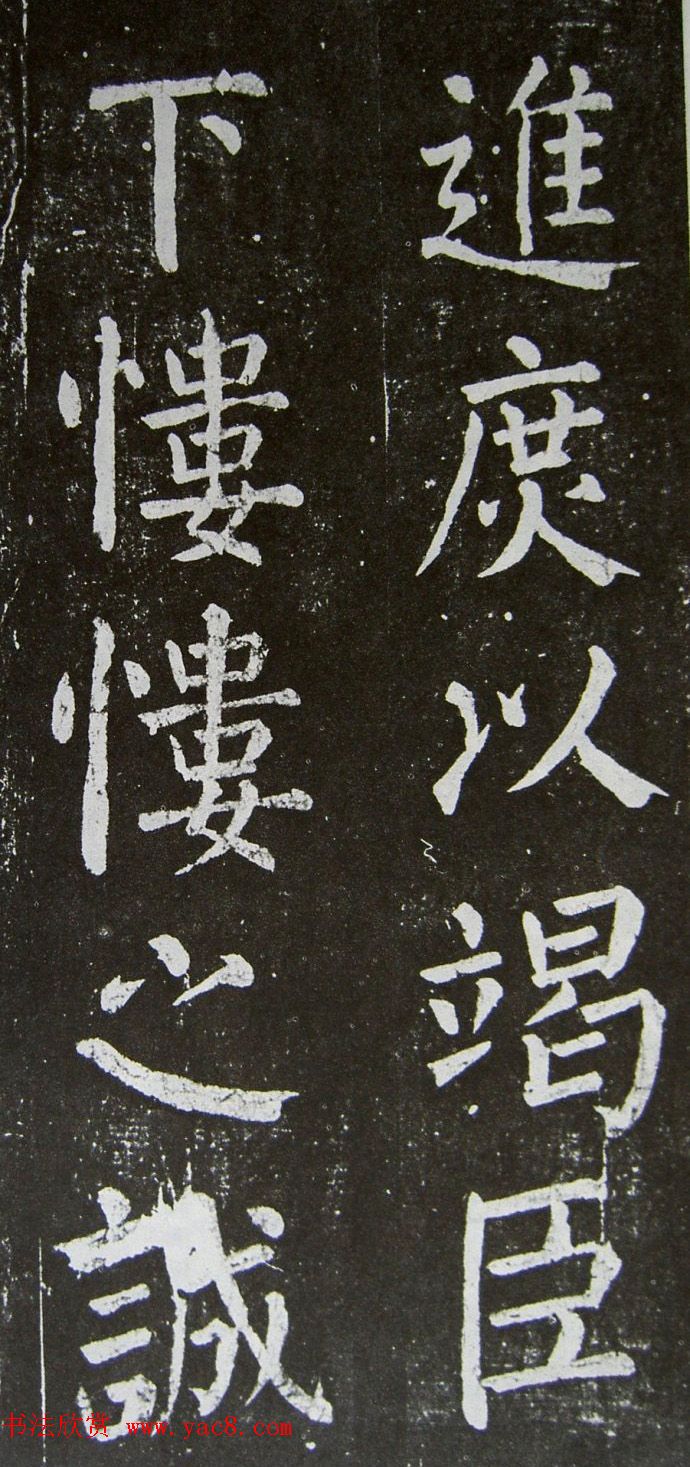 進庻以竭臣
下慺慺之誠
书法欣赏 www.yac8.com